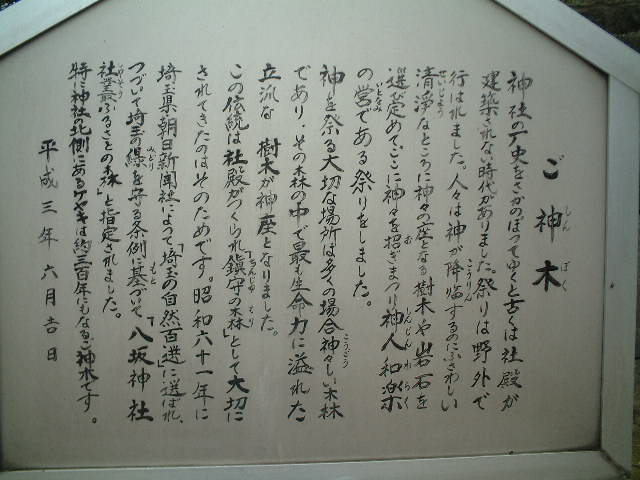 ご神木
しん ぼく
神社の歴史をさかのぼってゆくと古くは社殿が
建築されない時代がありました。祭りは野外で
行はれました。人々は神が降臨するのにふさわしい
こうりん
清浄なところに神々の座となる樹木や岩石を
せいじょう
選び定めてここに神々を招ぎまつり神人和楽
お しんじんわらく
の営である祭りをしました。
いとなみ
神を祭る大切な場所は多くの場合神々しい森林
こうごう
であり、その森の中で最も生命力に溢れた
立派な 樹木が神座となりました。
この伝統は社殿がつくられ「鎮守の森」として大切に
ちんじゅ もり
されてきたのはそのためです。昭和六十一年に
埼玉県朝日新聞社によって「埼玉の自然百選」に選ばれ、
つづいて埼玉の緑を守る条例に基づいて「八坂神社
みどり もと
社叢ふるさとの森」と指定されました。
特に神社の北側にあるケヤキは約三百年にもなるご神木です。
平成三年六月吉日